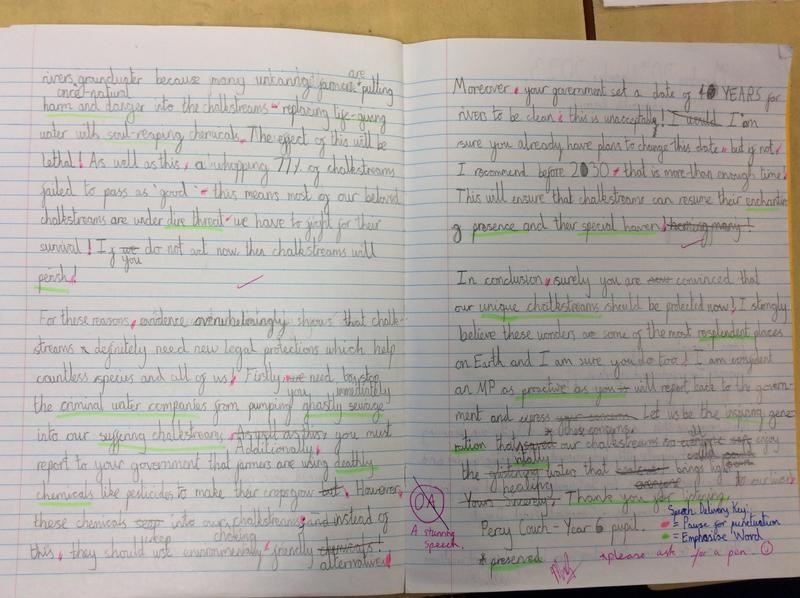 rivers, groundwater because many uncaring farmers are putting
once-natural
harm and danger into the chalkstreams - replacing life-giving
water with soul-reaping chemicals. The effect of this will be
lethal! As well as this, a whopping 77% of chalkstreams
failed to pass as 'good' - this means most of our beloved
chalkstreams are under dire threat - we have to fight for their
survival! If you do not act now then chalkstreams will
perish!
For these reasons, evidence overwhelmingly shows that chalk-
streams definitely need new legal protections which help
countless species and all of us! Firstly, you need to stop
immediately
the criminal water companies from pumping ghastly sewage
into our suffering chalkstreams. As well as this, you must
Additionally,
report to your government that farmers are using deathly
chemicals like pesticides to make their crops grow. However,
these chemicals seep into our chalkstreams; and instead of
choking
this, they should use environmentally friendly chemicals!
alternatives!
Moreover, your government set a date of 40 YEARS for
rivers to be clean; this is unacceptable! I would I am
sure you already have plans to change this date, but if not,
I recommend before 2030 - that is more than enough time!
This will ensure that chalkstreams can resume their enchantin
g presence and their special haven!
In conclusion, surely you are convinced that
our unique chalkstreams should be protected now! I strongly
believe these wonders are some of the most resplendent places
on Earth and I am sure you do too! I am confident
an MP as proactive as you will report back to the govern-
ment and express these concerns. Let us be the inspiring gene-
ration that * our chalkstreams so all enjoy
the totally water that brings
healing
to our world
Yours sincerely, Thank you for listening.
Percy Couch - Year 6 pupil.
* preserved
OA
A stunning
Speech.
Speech Delivery Key:
= Pause for punctuation
= Emphasise Word
*please ask for a pen